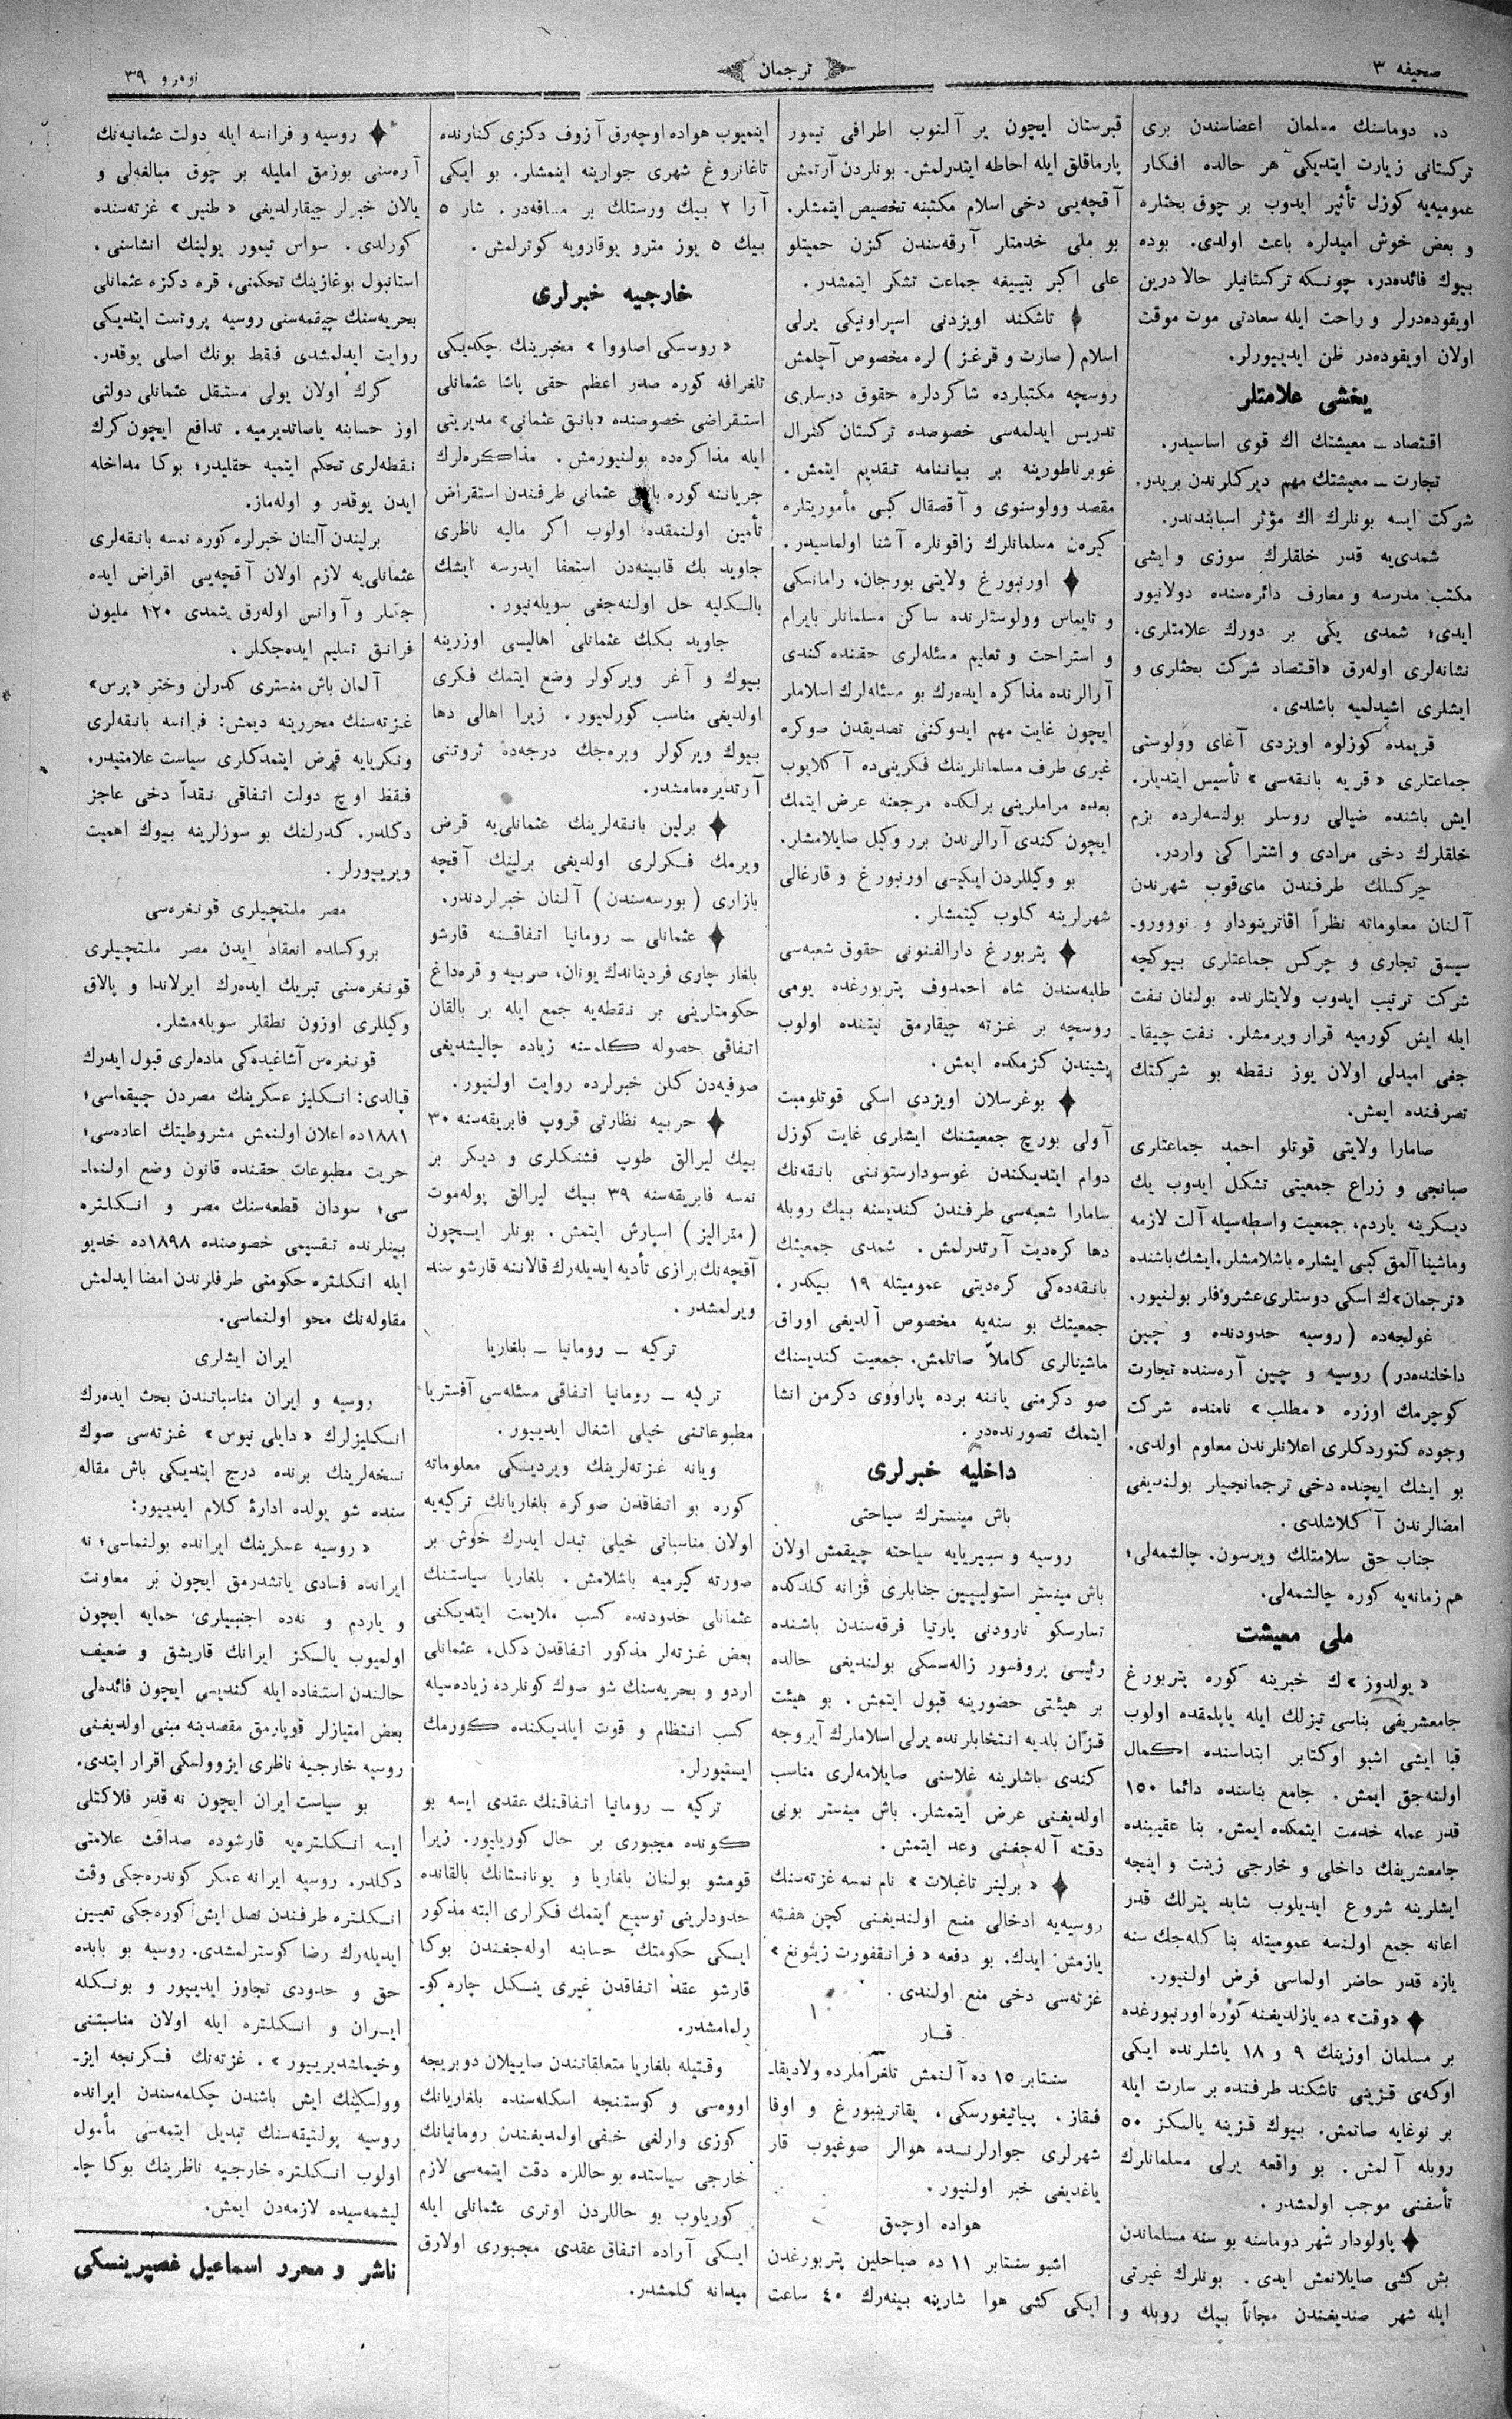 صحیفه ۳
ترجمان
نومرو ۳۹
د. دوماسنك مسلمان اعضاسندن بری
ترکستانی زیارت ایتدیکی هر حالده افکار
عمومیه‌یه کوزل تأثیر ایدوب بر چوق بحثلره
و بعض خوش امیدلره باعث اولدی. بوده
بیوك فائده‌در، چونکه ترکستانیلر حالا درین
اویقوده‌درلر و راحت ایله سعادتی موت موقت
اولان اویقوده‌در ظن ایدییورلر.
یخشی علامتلر
اقتصاد ــ معیشتك اك قوی اساسیدر.
تجارت ــ معیشتك مهم دیرکلرندن بریدر.
شرکت ایسه بونلرك اك مؤثر اسبابندندر.
شمدی‌یه قدر خلقلرك سوزی و ایشی
مکتب مدرسه و معارف دائره‌سنده دولانیور
ایدی؛ شمدی یکی بر دورك علامتلری،
نشانه‌لری اوله‌رق «اقتصاد شرکت بحثلری و
ایشلری اشیدلمیه باشلدی.
قریمده کوزلوه اویزدی آغای وولوستی
جماعتلری «قریه بانقه‌سی» تأسیس ایتدیلر.
ایش باشنده ضیالی روسلر بولنسه‌لرده بزم
خلقلرك دخی مرادی و اشتراکی واردر.
چرکسلك طرفندن مای‌قوب شهرندن
آلنان معلوماته نظراً اقاترینودار و نووورو۔
سیسق تجاری و چرکس جماعتلری بیوکچه
شرکت ترتیب ایدوب ولایتلرنده بولنان نفت
ایله ایش کورمیه قرار ویرمشلر. نفت چیقا۔
جغی امیدلی اولان یوز نقطه بو شرکتك
تصرفنده ایمش.
صامارا ولایتی قوتلو احمد جماعتلری
صبانجی و زراع جمعیتی تشکل ایدوب یك
دیکرینه یاردم، جمعیت واسطه‌سیله آلت لازمه
وماشینا آلمق کبی ایشلره باشلامشلر. ایشك باشنده
«ترجمان»ك اسکی دوستلری عشروفلر بولنیور.
غولجه‌ده (روسیه حدودنده و چین
داخلنده‌در) روسیه و چین آره‌سنده تجارت
کوچرمك اوزره «مطلب» نامنده شرکت
وجوده کتوردکلری اعلانلرندن معلوم اولدی.
بو ایشك ایچنده دخی ترجمانجیلر بولندیغی
امضالرندن آکلاشلدی.
جناب حق سلامتلك ویرسون. چالشمه‌لی؛
هم زمانه‌یه کوره چالشمه‌لی.
ملی معیشت
«یولدوز»ك خبرینه کوره پتربورغ
جامعشریفی بناسی تیزلك ایله یاپلمقده اولوب
قبا ایشی اشبو اوکتابر ابتداسنده اکمال
اولنه‌جق ایمش. جامع بناسنده دائما ۱۵۰
قدر عمله خدمت ایتمکده ایمش. بنا عقیبنده
جامعشریفك داخلی و خارجی زینت و اینجه
ایشلرینه شروع ایدیلوب شاید یترلك قدر
اعانه جمع اولنسه عمومیتله بنا کله‌جك سنه
یازه قدر حاضر اولماسی فرض اولنیور.
«وقت» ده یازلدیغنه کوره اورنبورغده
بر مسلمان اوزینك ۹ و ۱۸ یاشلرنده ایکی
اوکه‌ی قزینی تاشکند طرفنده بر سارت ایله
بر نوغایه صاتمش. بیوك قزینه یالکز ۵۰
روبله آلمش. بو واقعه یرلی مسلمانلرك
تأسفنی موجب اولمشدر.
پاولودار شهر دوماسنه بو سنه مسلماندن
بش کشی صایلانمش ایدی. بونلرك غیرتی
ایله شهر صندیغندن مجاناً بیك روبله و
قبرستان ایچون یر آلنوب اطرافی تیمور
یارماقلق ایله احاطه ایتدرلمش. بونلردن آرتمش
آقچه‌یی دخی اسلام مکتبنه تخصیص ایتمشلر.
بو ملی خدمتلر آرقه‌سندن کزن حمیتلو
علی اکبر بتییغه جماعت تشکر ایتمشدر.
تاشکند اویزدنی اسپراونیکی یرلی
اسلام (صارت و قرغز) لره مخصوص آچلمش
روسچه مکتبلرده شاکردلره حقوق درسلری
تدریس ایدلمه‌سی خصوصده ترکستان کنرال
غوبرناطورینه بر بیاننامه تقدیم ایتمش.
مقصد وولوسنوی و آقصقال کبی مأموریتلره
کیره‌ن مسلمانلرك زاقونلره آشنا اولماسیدر.
اورنبورغ ولایتی بورجان، رامانسکی
و تایماس وولوستلرنده ساکن مسلمانلر بایرام
و استراحت و تعلیم مسئله‌لری حقنده کندی
آرالرنده مذاکره ایده‌رك بو مسئله‌لرك اسلاملر
ایچون غایت مهم ایدوکنی تصدیقدن صوکره
غیری طرف مسلمانلرینك فکرینی‌ده آکلایوب
بعده مراملرینی برلکده مرجعنه عرض ایتمك
ایچون کندی آرالرندن برر وکیل صایلامشلر.
بو وکیللردن ایکیسی اورنبورغ و قارغالی
شهرلرینه کلوب کیتمشلر.
پتربورغ دارالفنونی حقوق شعبه‌سی
طلبه‌سندن شاه احمدوف پتربورغده یومی
روسچه بر غزته چیقارمق نیتنده اولوب
پشیندن کزمکده ایمش.
بوغرسلان اویزدی اسکی قوتلومبت
آولی بورچ جمعیتنك ایشلری غایت کوزل
دوام ایتدیکندن غوسودارستوننی بانقه‌نك
سامارا شعبه‌سی طرفندن کندیسنه بیك روبله
دها کره‌دیت آرتدرلمش. شمدی جمعیتك
بانقه‌ده‌کی کره‌دیتی عمومیتله ۱۹ بیکدر.
جمعیتك بو سنه‌یه مخصوص آلدیغی اوراق
ماشینالری کاملاً صاتلمش. جمعیت کندیسنك
صو دکرمنی یاننه برده پاراووی دکرمن انشا
ایتمك تصورنده‌در.
داخلیه خبرلری
باش مینسترك سیاحتی
روسیه و سیبیریایه سیاحته چیقمش اولان
باش مینستر استولیپین جنابلری قزانه کلدکده
تسارسکو نارودنی پارتیا فرقه‌سندن باشنده
رئیسی پروفسور زاله‌سسکی بولندیغی حالده
بر هیئتی حضورینه قبول ایتمش. بو هیئت
قزان بلدیه انتخابلرنده یرلی اسلاملرك آیروجه
کندی باشلرینه غلاسنی صایلامه‌لری مناسب
اولدیغنی عرض ایتمشلر. باش مینستر بونی
دقته آله‌جغنی وعد ایتمش.
«برلینر تاغبلات» نام نمسه غزته‌سنك
روسیه‌یه ادخالی منع اولندیغنی کچن هفته
یازمش ایدك. بو دفعه «فرانقفورت زیتونغ»
غزته‌سی دخی منع اولندی.
قار
سنتابر ۱۵ ده آلنمش تلغراملرده ولادیقا۔
فقاز، پیاتیغورسکی، یقاترینبورغ و اوفا
شهرلری جوارلرنده هوالر صوغیوب قار
یاغدیغی خبر اولنیور.
هواده اوچمق
اشبو سنتابر ۱۱ ده صباحلین پتربورغدن
ایکی کشی هوا شارینه بینه‌رك ۴۰ ساعت
اینمیوب هواده اوچه‌رق آزوف دکزی کنارنده
تاغانروغ شهری جوارینه اینمشلر. بو ایکی
آرا ۲ بیك ورستلك بر مسافه‌در. شار ۵
بیك ۵ یوز مترو یوقارویه کوترلمش.
خارجیه خبرلری
«روسسکی اصلووا» مخبرینك چکدیکی
تلغرافه کوره صدر اعظم حقی پاشا عثمانلی
استقراضی خصوصنده «بانق عثمانی» مدیریتی
ایله مذاکره‌ده بولنیورمش. مذاکره‌لرك
جریاننه کوره عثمانی طرفندن استقراض
تأمین اولنمقده اولوب اکر مالیه ناظری
جاوید بك قابینه‌دن استعفا ایدرسه ایشك
بالکلیه حل اولنه‌جغی سویله‌نیور.
جاوید بکك عثمانلی اهالیسی اوزرینه
بیوك و آغر ویرکولر وضع ایتمك فکری
اولدیغی مناسب کورلمیور. زیرا اهالی دها
بیوك ویرکولر ویره‌جك درجه‌ده ثروتنی
آرتدیره‌مامشدر.
برلین بانقه‌لرینك عثمانلی‌یه قرض
ویرمك فکرلری اولدیغی برلینك آقچه
بازاری (بورسه‌سندن) آلنان خبرلردندر.
عثمانلی ــ رومانیا اتفاقنه قارشو
بلغار چاری فردیناندك یونان، صربیه و قره‌داغ
حکومتلرینی بر نقطه‌یه جمع ایله بر بالقان
اتفاقی حصوله کلمسنه زیاده چالیشدیغی
صوفیه‌دن کلن خبرلرده روایت اولنیور.
حربیه نظارتی قروپ فابریقه‌سنه ۳۰
بیك لیرالق طوپ فشنکلری و دیکر بر
نمسه فابریقه‌سنه ۳۹ بیك لیرالق پوله‌موت
(مترالیز) اسپارش ایتمش. بونلر ایچون
آقچه‌نك برازی تأدیه ایدیله‌رك قالاننه قارشو سند
ویرلمشدر.
ترکیه ــ رومانیا ــ بلغاریا
ترکیه ــ رومانیا اتفاقی مسئله‌سی آفستریا
مطبوعاتنی خیلی اشغال ایدییور.
ویانه غزته‌لرینك ویردیکی معلوماته
کوره بو اتفاقدن صوکره بلغاریانك ترکیه‌یه
اولان مناسباتی خیلی تبدل ایدرك خوش بر
صورته کیرمیه باشلامش. بلغاریا سیاستنك
عثمانلی حدودنده کسب ملایمت ایتدیکنی
بعض غزته‌لر مذکور اتفاقدن دکل، عثمانلی
اردو و بحریه‌سنك شو صوك کونلرده زیاده‌سیله
کسب انتظام و قوت ایلدیکنده کورمك
ایستیورلر.
ترکیه ــ رومانیا اتفاقنك عقدی ایسه بو
کونده مجبوری بر حال کوریلیور. زیرا
قومشو بولنان بلغاریا و یونانستانك بالقانده
حدودلرینی توسیع ایتمك فکرلری البته مذکور
ایکی حکومتك حسابنه اوله‌جغندن بوکا
قارشو عقد اتفاقدن غیری ینکل چاره کو۔
رلمامشدر.
وقتیله بلغاریا متعلقاتندن صاییلان دوبریچه
اووه‌سی و کوستنجه اسکله‌سنده بلغاریانك
کوزی وارلغی خفی اولمدیغندن رومانیانك
خارجی سیاستده بو حاللره دقت ایتمه‌سی لازم
کوریلوب بو حاللردن اوتری عثمانلی ایله
ایکی آراده اتفاق عقدی مجبوری اولارق
میدانه کلمشدر.
روسیه و فرانسه ایله دولت عثمانیه‌نك
آره‌سنی بوزمق املیله بر چوق مبالغه‌لی و
یالان خبرلر چیقارلدیغی «طنین» غزته‌سنده
کورلدی. سواس تیمور یولینك انشاسنی،
استانبول بوغازینك تحکمنی، قره دکزه عثمانلی
بحریه‌سنك چیقمه‌سنی روسیه پروتست ایتدیکی
روایت ایدلمشدی فقط بونك اصلی یوقدر.
کرك اولان یولی مستقل عثمانلی دولتی
اوز حسابنه یاصاتدیرمیه. تدافع ایچون کرك
نقطه‌لری تحکم ایتمیه حقلیدر؛ بوکا مداخله
ایدن یوقدر و اوله‌ماز.
برلیندن آلنان خبرلره کوره نمسه بانقه‌لری
عثمانلی‌یه لازم اولان آقچه‌یی اقراض ایده
جکلر و آوانس اوله‌رق شمدی ۱۲۰ ملیون
فرانق تسلیم ایده‌جکلر.
آلمان باش منستری کدرلن وختر «پرس»
غزته‌سنك محررینه دیمش: فرانسه بانقه‌لری
ونکریایه قرض ایتمدکلری سیاست علامتیدر.
فقط اوچ دولت اتفاقی نقداً دخی عاجز
دکلدر. کدرلنك بو سوزلرینه بیوك اهمیت
ویرییورلر.
مصر ملتچیلری قونغره‌سی
بروکسلده انعقاد ایدن مصر ملتچیلری
قونغره‌سنی تبریك ایده‌رك ایرلاندا و پالاق
وکیللری اوزون نطقلر سویله‌مشلر.
قونغره‌س آشاغیده‌کی ماده‌لری قبول ایدرك
قپالدی: انکلیز عسکرینك مصردن چیقماسی؛
۱۸۸۱ده اعلان اولنمش مشروطیتك اعاده‌سی؛
حریت مطبوعات حقنده قانون وضع اولنما۔
سی؛ سودان قطعه‌سنك مصر و انکلتره
بینلرنده تقسیمی خصوصنده ۱۸۹۸ده خدیو
ایله انکلتره حکومتی طرفلرندن امضا ایدلمش
مقاوله‌نك محو اولنماسی.
ایران ایشلری
روسیه و ایران مناسباتندن بحث ایده‌رك
انکلیزلرك «دایلی نیوس» غزته‌سی صوك
نسخه‌لرینك برنده درج ایتدیکی باش مقاله
سنده شو یولده ادارۀ کلام ایدییور:
«روسیه عسکرینك ایرانده بولنماسی؛ نه
ایرانده فسادی یاتشدرمق ایچون بر معاونت
و یاردم و نه‌ده اجنبیلری حمایه ایچون
اولمیوب یالکز ایرانك قاریشق و ضعیف
حالندن استفاده ایله کندیسی ایچون فائده‌لی
بعض امتیازلر قوپارمق مقصدینه مبنی اولدیغنی
روسیه خارجیه ناظری ایزوولسکی اقرار ایتدی.
بو سیاست ایران ایچون نه قدر فلاکتلی
ایسه انکلتره‌یه قارشوده صداقت علامتی
دکلدر. روسیه ایرانه عسکر کوندره‌جکی وقت
انکلتره طرفندن نصل ایش کوره‌جکی تعیین
ایدیله‌رك رضا کوسترلمشدی. روسیه بو بابده
حق و حدودی تجاوز ایدییور و بونکله
ایران و انکلتره ایله اولان مناسبتنی
وخیملشدیرییور». غزته‌نك فکرنجه ایز۔
وولسکینك ایش باشندن چکلمه‌سندن ایرانده
روسیه پولتیقه‌سنك تبدیل ایتمه‌سی مأمول
اولوب انکلتره خارجیه ناظرینك بوکا چا۔
لیشمه‌سیده لازمه‌دن ایمش.
ناشر و محرر اسماعیل غصپرینسکی